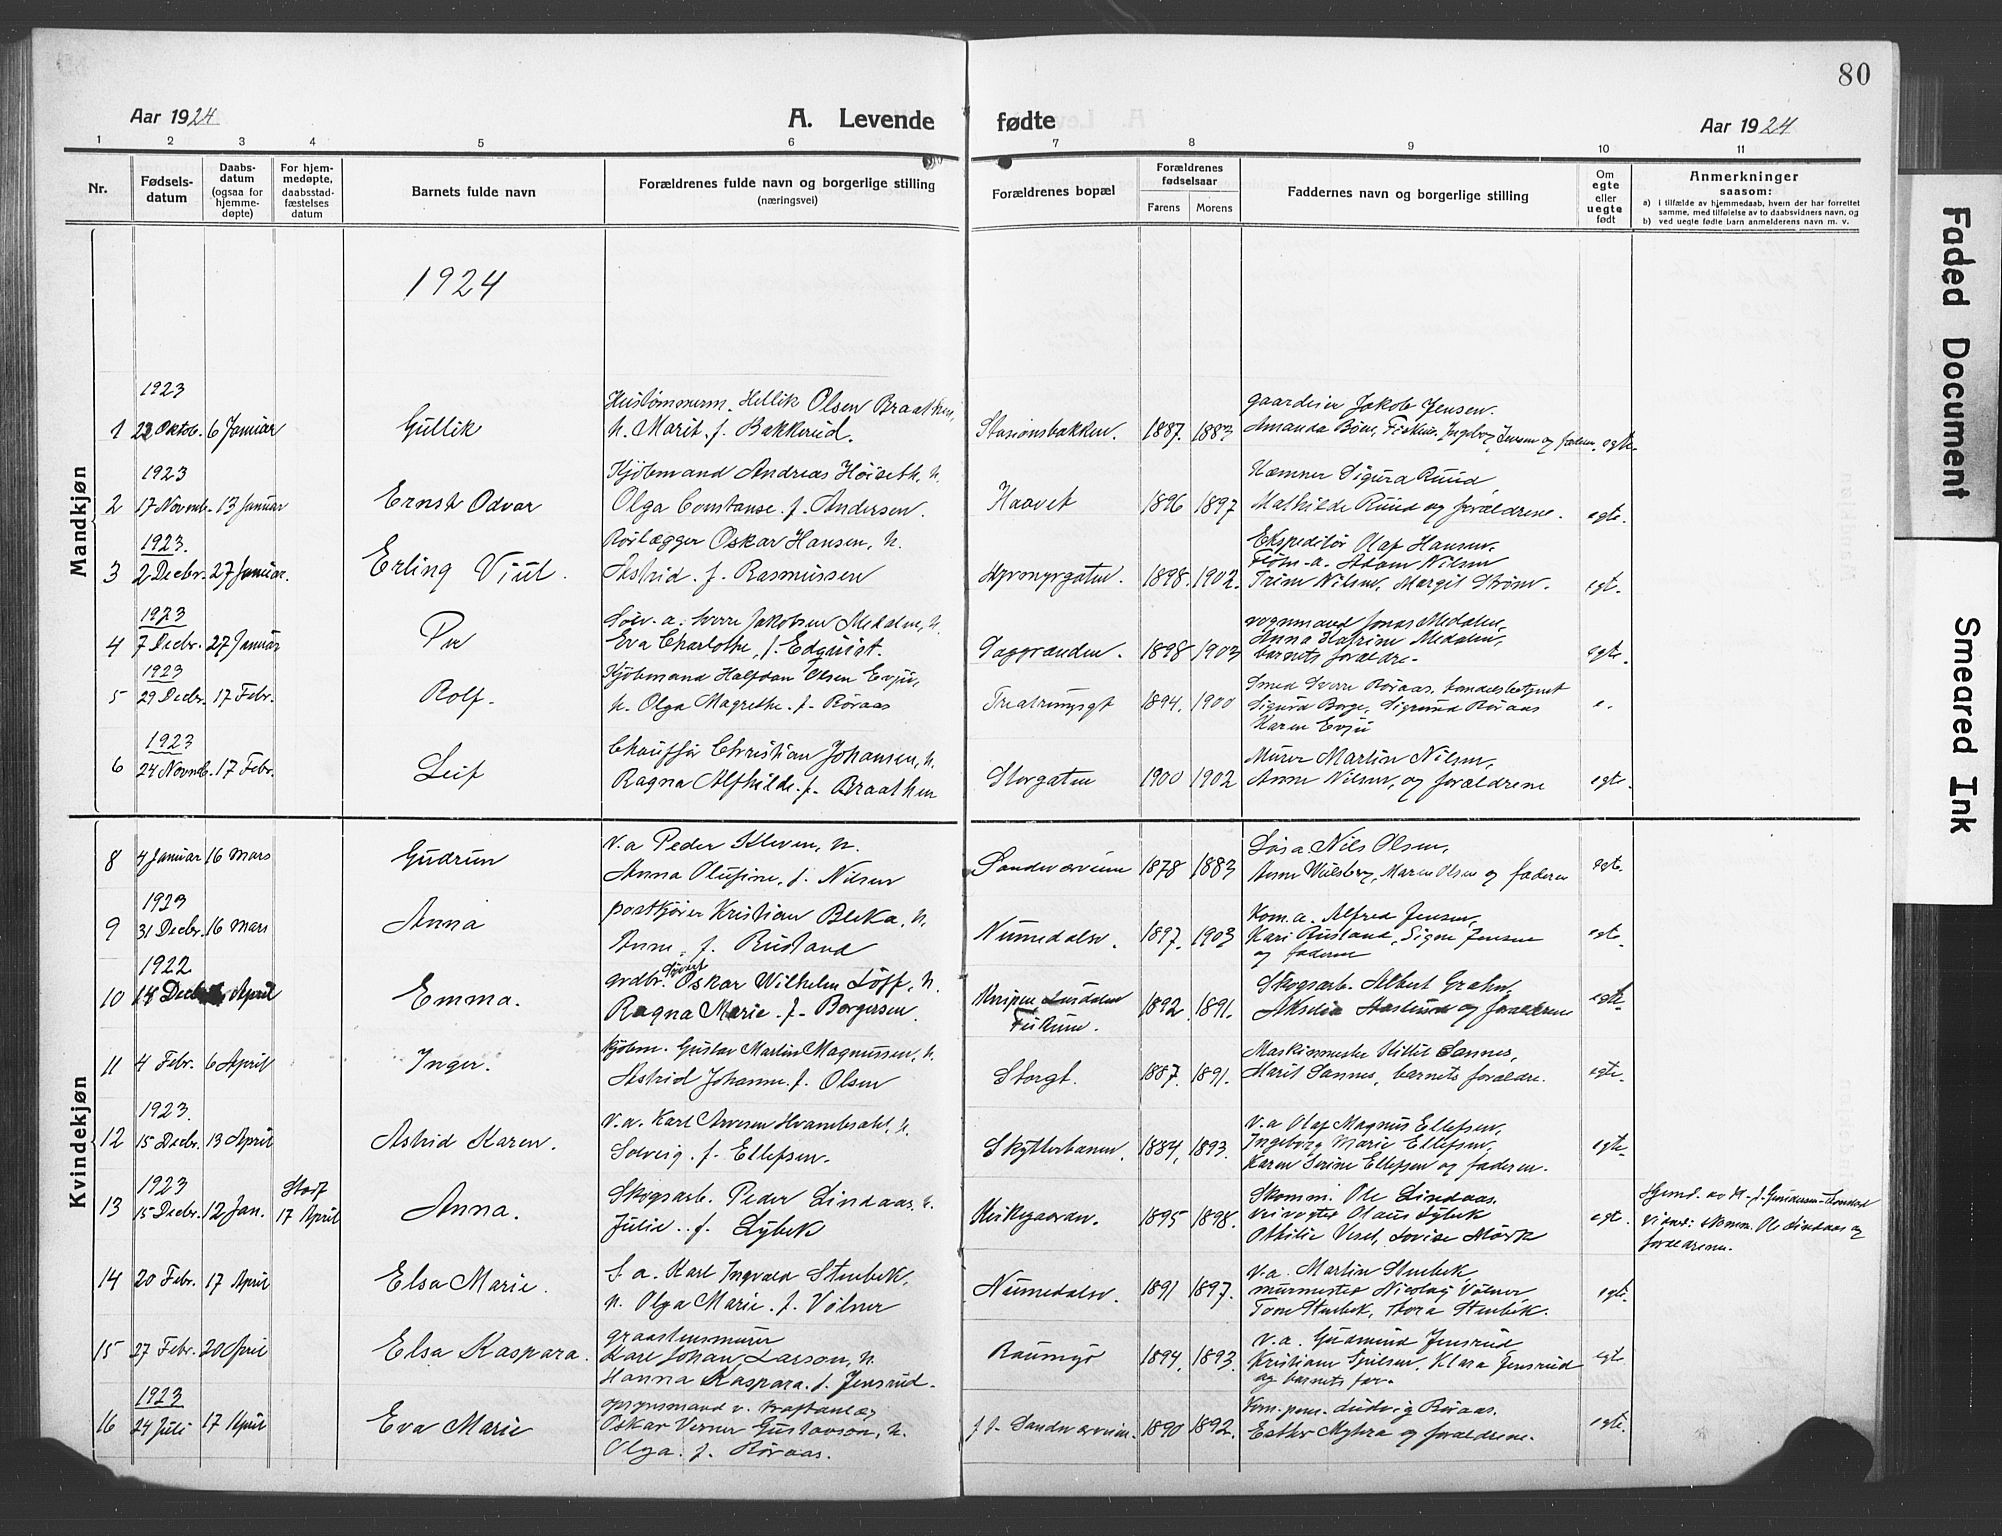 80
Aar 1924
A. Levende fødte
Aar 1924
1 2 3 4 5 6 7 8 9 10 11
Nr.
Fødsels-
datum
Daabs-
datum
(ogsaa for
hjemme-
døpte)
For hjem-
medøpte,
daabsstad-
fæstelses
datum
Barnets fulde navn
Forældrenes fulde navn og borgerlige stilling
(næringsvei)
Forældrenes bopæl
Forældrenes
fødselsaar
Farens Morens
Faddernes navn og borgerlige stilling
Om
egte
eller
uegte
født
Anmerkninger
saasom:
a) i tilfælde av hjemmedaab, hvem der har forrettet
samme, med tilføielse av to daabsvidners navn, og
b) ved uegte fødte barn anmelderens navn m. v.
Mandkjøn
1924
1923
1 22 Oktob. 6 Januar Gullik
Hustømmerm. Hellik Olsen Braathen,
h. Marit. f. Bakkerud.
Stasionsbakken. 1887. 1883
gaardeier Jakob Jensen.
Amanda Ingeborg Jensen og faderen. egte.
1923
2 17 Novmb. 13 Januar Ernst Odvar
Kjøbmand Andreas Høiseth, h.
Olga Constanse. f. Andersen.
Haavet 1896 1897
Kæmner Sigurd Ruud
Mathilde Ruud og forældrene. egte.
1923.
3 2 Decbr. 27 Januar. Erling Viul.
Rørlægger Oskar Hansen, h.
Astrid. f. Rasmussen
Hyrmyrgaten. 1898. 1902.
Ekspeditør Olaf Hansen,
Adam Nilsen
Nilsen, Margit Strøm. egte.
1923
4 7 Decbr. 27 Januar Per
Sverre Jakobsen Medalen, h.
Eva Charlothe, f. Edquist.
1898 1903
vognmand Jonas Medalen,
Anna Katrine Medalen,
barnets forældre. egte.
1923
5 29 Decbr. 17 Febr. Rolf.
Kjøbmand Halfdan Olsen Evju,
h. Olga Magrethe. f. Røraas
1894. 1900
Smed Sverre Røraas, handelsbetjent
Sigurd Borge, Sigrund Røraas
Karen Evju e.
1923
6 24 Novmb. 17 Febr. Leif
Chauffør Christian Johansen, h.
Ragna Alfhilde. f. Braathen
Storgaten 1900 1902
Murer Martin Nilsen,
Anne Nilsen, og forældrene egte.
Kvindekjøn
8 4 Januar 16 mars Gudrun
v.a Peder Kleven, h.
Anna Olufine, f. Nilsen
Sandsværveien 1878 1883
Nils Olsen,
Anne Maren Olsen og faderen egte.
1923
9 31 Decbr. 16 mars Anna
postkjører Kristian Bleka, h.
Anne, f. Rustand
Numedalsv. 1897. 1903
Kom.a. Alfred Jensen,
Kari Rustand, Signe Jensen
og faderen egte.
1922
10 18 Decbr. April Emma.
Oskar Wilhelm Löff, h.
Ragna Marie. f. Borgersen.
1892. 1891.
Skogsarb. Albert Grahn,
og forældrene egte.
11 4 Febr. 6 April Inger.
Kjøbm. Gustav Martin Magnussen, h.
Astrid Johanne. f. Olsen
Storgt. 1887. 1891.
Maskinmester Kittil Sannes,
Marit Sannes, barnets forældre. egte.
1923.
12 15 Decbr. 13 April Astrid Karen.
v.a. Karl Arvesen Hvambsahl, h.
Solveig. f. Ellefsen.
Skytterbanen. 1884. 1893.
v.a Olaf Magnus Ellefsen,
Ingeborg Marie Ellefsen,
Karen Serine Ellefsen og faderen. egte.
1923
13 15 Decbr. 12 Jan. Stadf 17 April Anna.
Skogsarb. Peder Lindaas, h.
Julie. f. Lybek
Kirkegaarden. 1895 1898.
Skomm. Ole Lindaas.
Olaus Lybek
Othilie Vesel, Lovise Mørk egte.
Hjemd. av
skomm. Ole Lindaas og
forældrene.
14 20 Febr. 17 April Elsa Marie.
S.a. Karl Ingvald Stenbek,
h. Olga Marie. f. Völner
Numedalsv. 1891 1897.
v.a. Martin Stenbek
murmester Nicolay Völner
Stenbek, Stenbek. egte.
15 27 Febr. 20 April Elsa Kaspara.
graastensmurer
Karl Johan Larson, h.
Hanna Kaspara. f. Jensrud.
Raumyr 1894. 1893.
v.a. Gudmund Jensrud
Klara Jensrud
og barnets far. egte
1923
16 24 Juli 17 April Eva Marie
opsynsmand v. kraftanlæg
Oskar Verner Gustavson, h.
Olga. f. Røraas.
Sandsværveien. 1890 1892.
Ludvig Røraas.
Esther Myhra og forældrene. egte
Faded Document
Smeared Ink